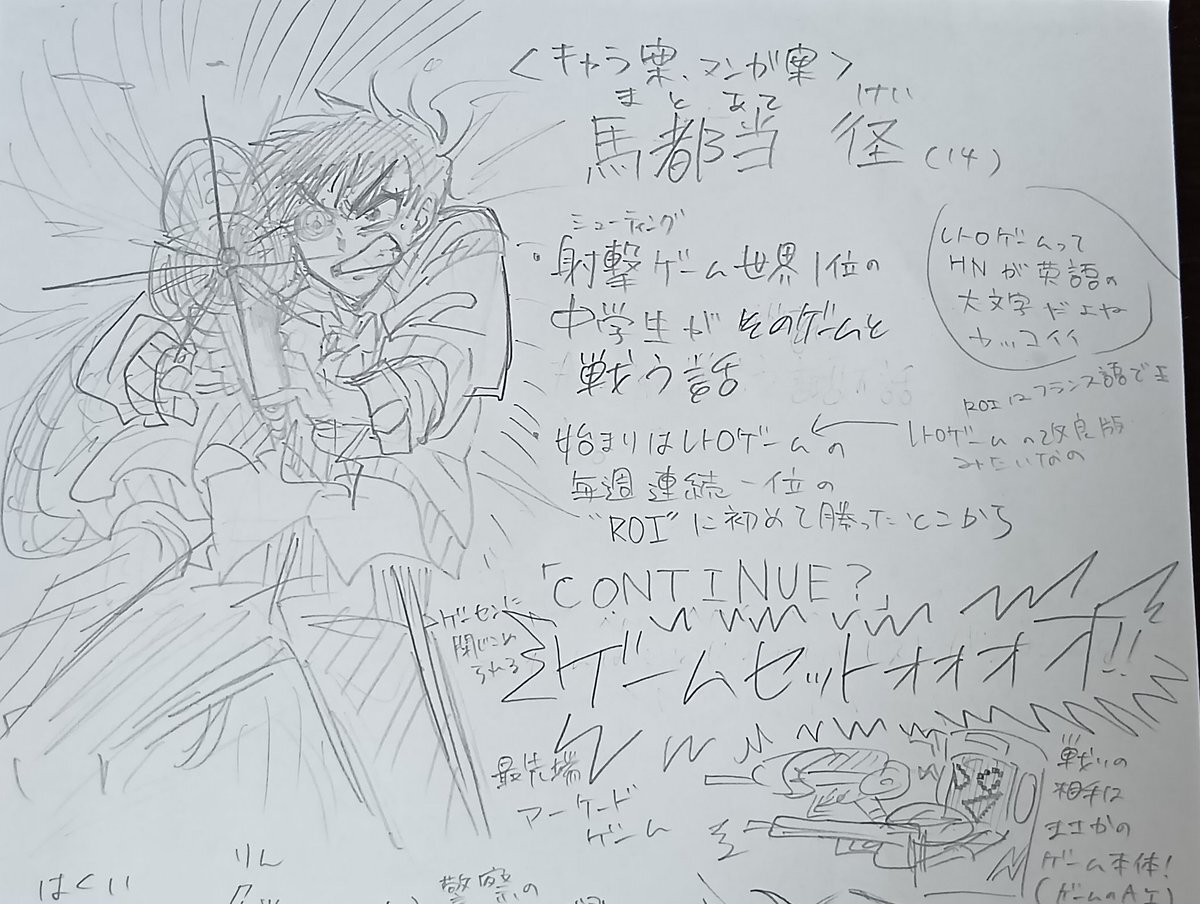 ＜キャラ案、マンガ案＞
まとあて けい
馬都当 径（14）
シューティング
・射撃ゲーム世界1位の
中学生がそのゲームと
戦う話
レトロゲームって
HNが英語の
大文字だよね
カッコイイ
ROIはフランス語で王
・始まりはレトロゲームの
毎週連続一位の
"ROI"に初めて勝ったとこから
レトロゲームの改良版
みたいなの
「CONTINUE？」
ゲーセンに
閉じこめ
られる
ゲームセットォォォオ!!
最先端
アーケード
ゲーム
戦いの
相手は
まさかの
ゲーム本体！
（ゲームのAI）
はくい
りん
警察の